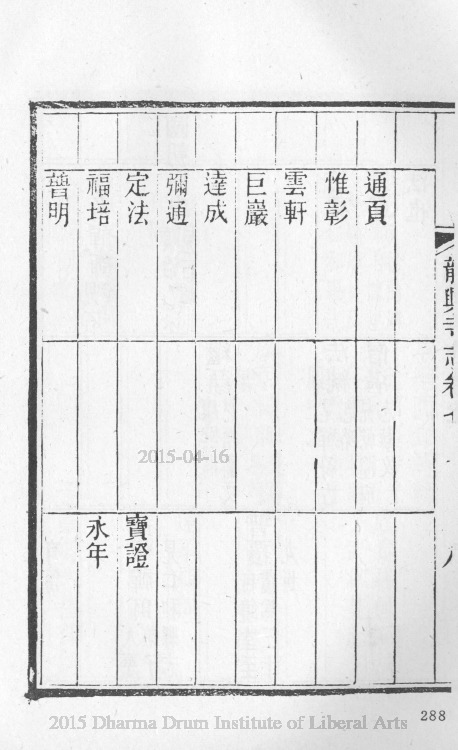 通頁
惟彰
雲軒
巨巖
達成
彌通
定法
福培
普明
寶證
永年
2015-04-16
288
2015 Dharma Drum Institute of Liberal Arts